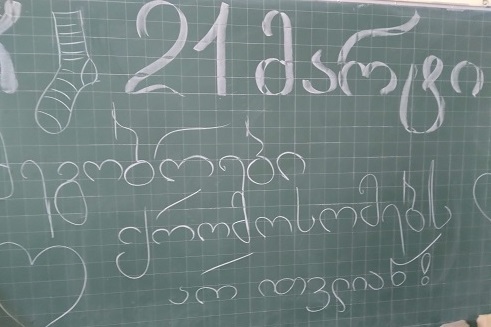 21 მარტი
მეგობრები
ქრომოსომებს
არ ითვლიან!